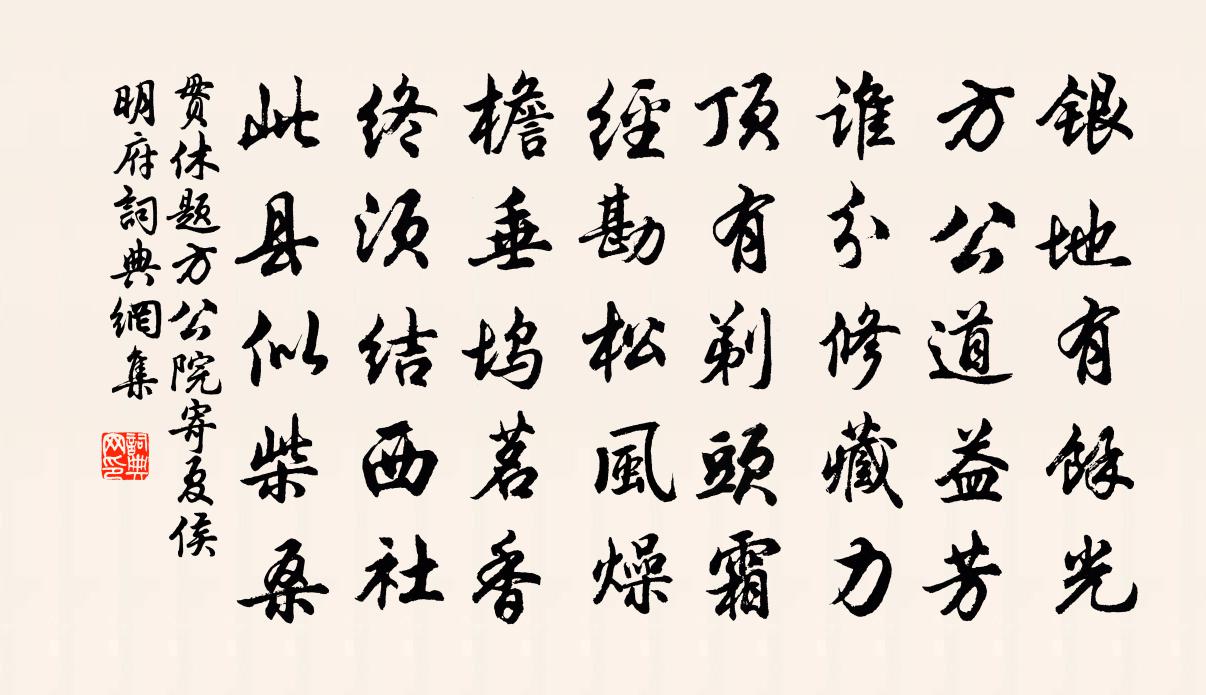 銀地有餘光
方公道益芳
谁分修藏力
顶有剃頭霜
經勘松風燥
檐垂坞茗香
终须结西社
此县似柴桑
贯休题方公院寄夏侯
明府詞典網集
詞典
网印